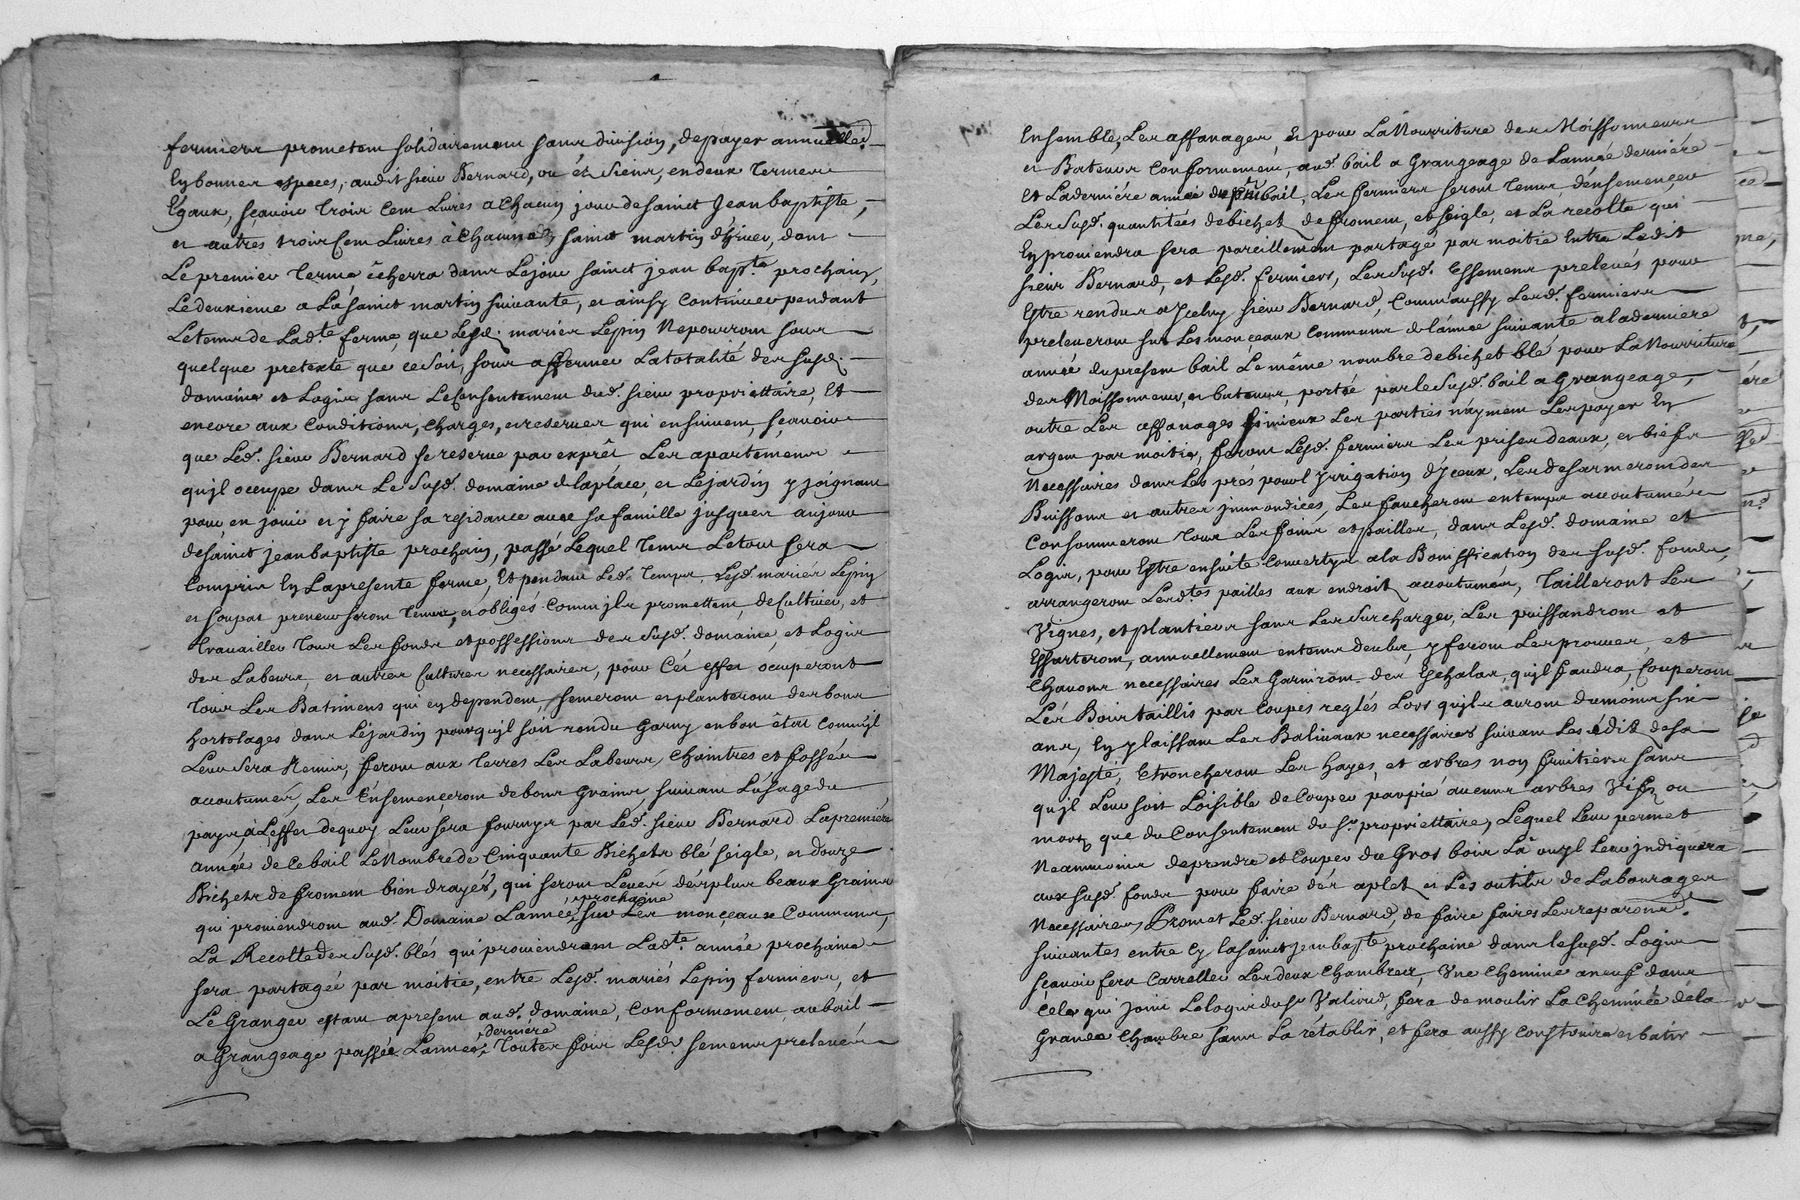 fermiers prometent solidairement sans division, de payer annuelle.t
En bonnes especes, audit sieur Bernard, ou et siens, en deux termes
Egaux, sçavoir trois cent Livres a chacun jour de sainct Jean baptiste,
et autres trois cent Livres à chacune saint martin d'hiver, dont
Le premier terme êcherra dans Le jour sainct jean bap.te prochain,
Le deuxieme a La sainct martin suivante, et ainsy continuer pendant
Le tems de Lad.te ferme, que Lesd. mariés Lepin Ne pourront sous
quelque pretexte que ce soit, sous affermer La totalité des susd.
domaine et Logis sans Le Consentement dud. sieur propriettaire, Et
encore aux Conditions, charges, et reserves qui ensuivent, sçavoir
que Led. sieur Bernard se reserve par exprêt Les apartemens
qu'jl occupe dans Le susd. domaine de la place, et Le jardin y joignant
pour en jouir et y faire sa residance avec sa famille jusques au jour
de sainct jean baptiste prochain, passé Lequel tems Le tout sera
Compris En La presente ferme, Et pendant Led. Temps Lesd. mariés Lepin
et soupat preneurs seront tenus, et obligés comm'jls promettent, de Cultiver, et
travailler tous Les fonds et possessions des susd. domaine, et Logis
des Labeurs, et autres Cultures necessaires, pour Cet effet occuperont
tous Les Batimens qui en dependent, semeront et planteront des bons
hortolages dans Le jardin pour qu'jl soit rendu garny en bon êtat Comm'jl
Leur sera Remis, feront aux terres Les Labeurs, Chaintres et fossés
accoutumés, Les Ensemenceront de bons grains suivant L'usage du
pays, à L'effet de quoy Leur sera fourny par Led. sieur Bernard La premiere
année de Ce bail Le Nombre de Cinquante Bichets blé seigle, et douze
Bichets de froment bien drayés, qui seront Levés des plus beaux grains
qui proviendront aud. Domaine L'année prochaine sur Les monçeaux Communs,
La Recolte des susd. blés qui proviendront Lad.te année prochaine
sera partagée par moitié, entre Lesd. mariés Lepin fermiers, et
Le Granger estant apresent aud. domaine, Conformement au bail
a Grangeage passée L'année derniere, toutes fois Lesd. semens prelevés
Ensemble, Les affanages, Et pour La Nourriture des Moissonneurs
et Bateurs Conformement, aud. bail a Grangeage de L'année derniére
Et La derniére année du p.nt bail, Les fermiers seront tenus d'ensemencer
Les susd. quantités de bichet de froment, et seigle, et La récolte qui
En proviendra sera pareillement partagé par moitié Entre Ledit
sieur Bernard, et Lesd. fermiers, Les susd. Essemens prelevés pour
Estre rendus a Jceluy sieur Bernard, Comm'aussy Lesd. fermiers
preleveront sur Les monçeaux communs de L'année suivante a la derniere
année du present bail Le même nombre de bichet blé pour La Nourriture
des Moissonneurs, et bateurs, porté par le susd. bail a Grangeage,
outre Les affanages si mieux Les parties n'ayment Les payer En
argent par moitié, feront Lesd. fermiers Les prises d'eaux, et biefs
Necessaires dans Les prés pour l'jrrigation d'jceux, Les desarmeront des
Buissons et autres jmmondices Les faucheront en temps accoutumés
Consommeront tous Les foins et pailles, dans Lesd. domaine et
Logis, pour Estre ensuite Convertys a la Bonification des susd. fonds,
arrangeront Lesd.tes pailles aux endroits accoutumés, Tailleront Les
Vignes, et plantiers sans Les surcharger, Les puissandront et
Essarteront, annuellement en tems deubs, y feront Les provier, et
Chavons necessaires Les Garniront des Echalas, qu'jl faudra, Couperont
Les Bois taillis par Coupes reglés Lors qu'jls auront du moins six
ans, En y laissant Les Baliveaux necessaires suivant Les édits de sa
Majesté, Etroncheront Les hayes, et arbres non fruitiers sans
qu'jl Leur soit Loisible de Couper par pié aucuns arbres Vifs ou
morts que du Consentement du s.r propriettaire, Lequel Leur permet
Neanmoins de prendre et Couper du Gros bois Là ou jl Leur jndiquera
aux susd. fonds pour faire des aplet et Les outils de Labourages
Necessaires, Promet Led. sieur Bernard, de faire faires Les reparons
suivantes entre Cy la sainct jean bap.te prochaine dans le susd. Logis
sçavoir fera Carreller Les deux Chambres, Une Cheminé a neuf dans
Celes qui joint Le logis du s.r Valioud, fera demoulir La Cheminée de la
Grande Chambre sans La rétablir, et fera aussy construire et batir